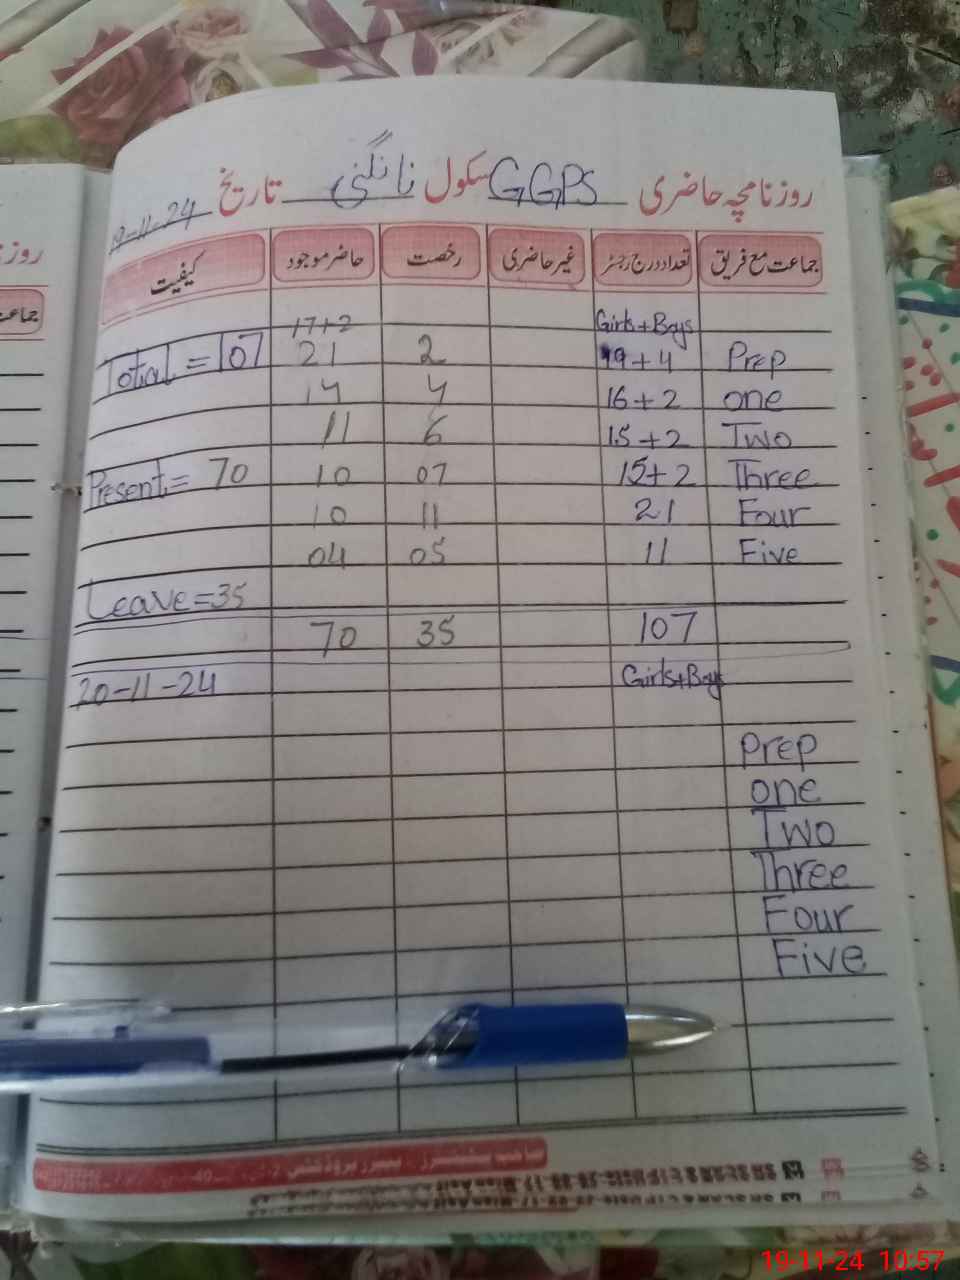 روزنامچہ حاضری GGPS سکول نانگنی تاریخ 19-11-24
جماعت مع فریق تعداد درج رجسٹر غیر حاضری رخصت حاضر موجود کیفیت
Girls+Boys 17+2
Prep 19+4 2 21 Total = 107
one 16+2 4 14
Two 15+2 6 11
Three 15+2 07 10 Present = 70
Four 21 11 10
Five 11 05 04
Leave = 35
107 35 70
Girls+Boys 20-11-24
Prep
one
Two
Three
Four
Five
روز
جماعت
19-11-24 10:57